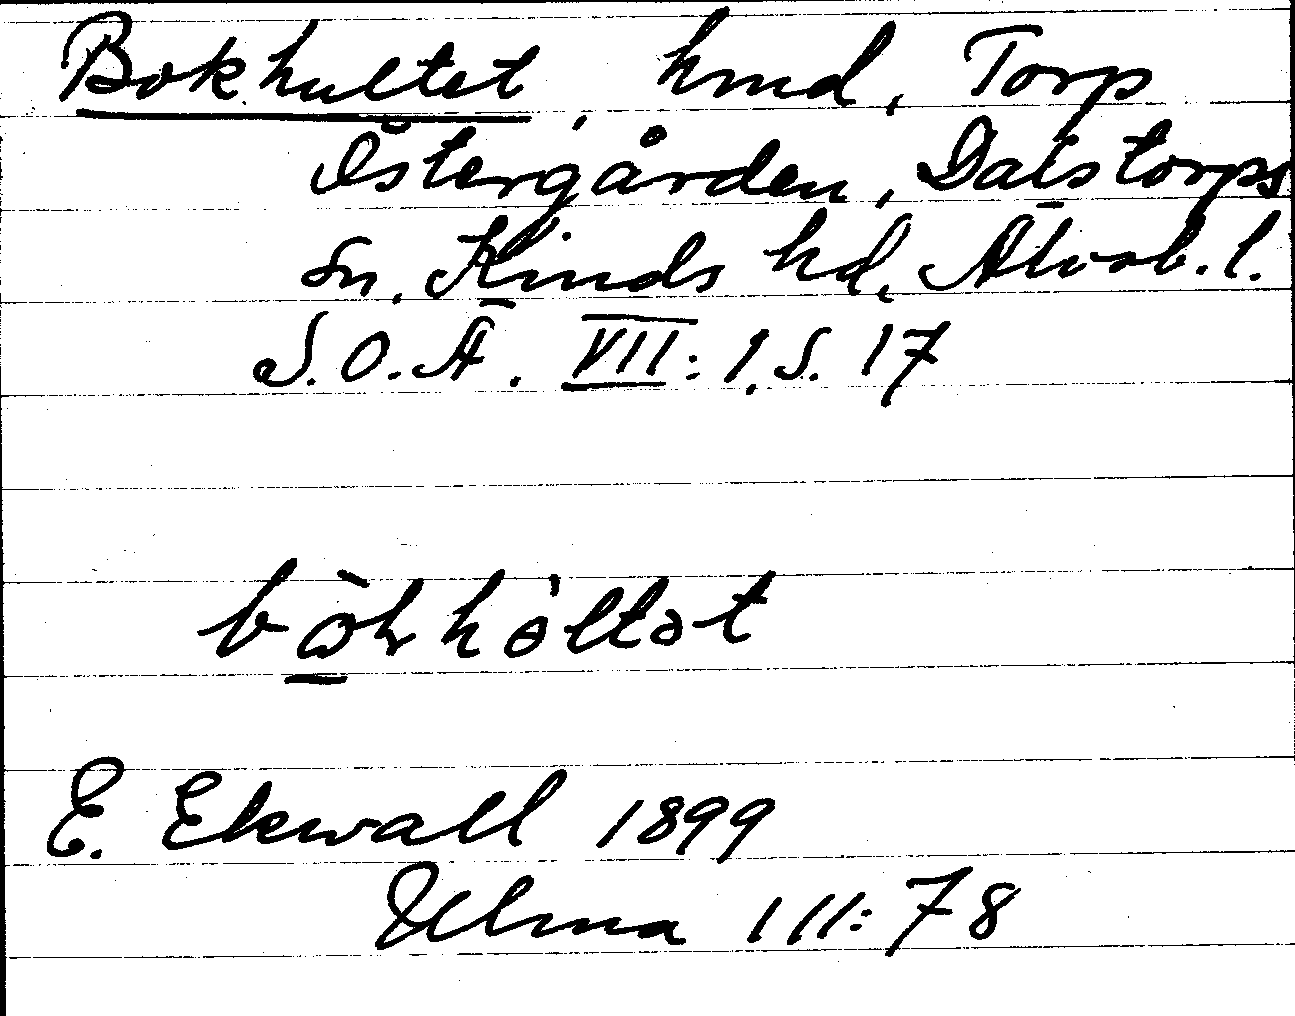 Bokhultet, hmd, Torp
Östergården, Dalstorps
sn. Kinds hd, Älvsb. l.
S. O. Ä. VII: 1. S. 17
E. Ekwall 1899
Ulma 111: 78